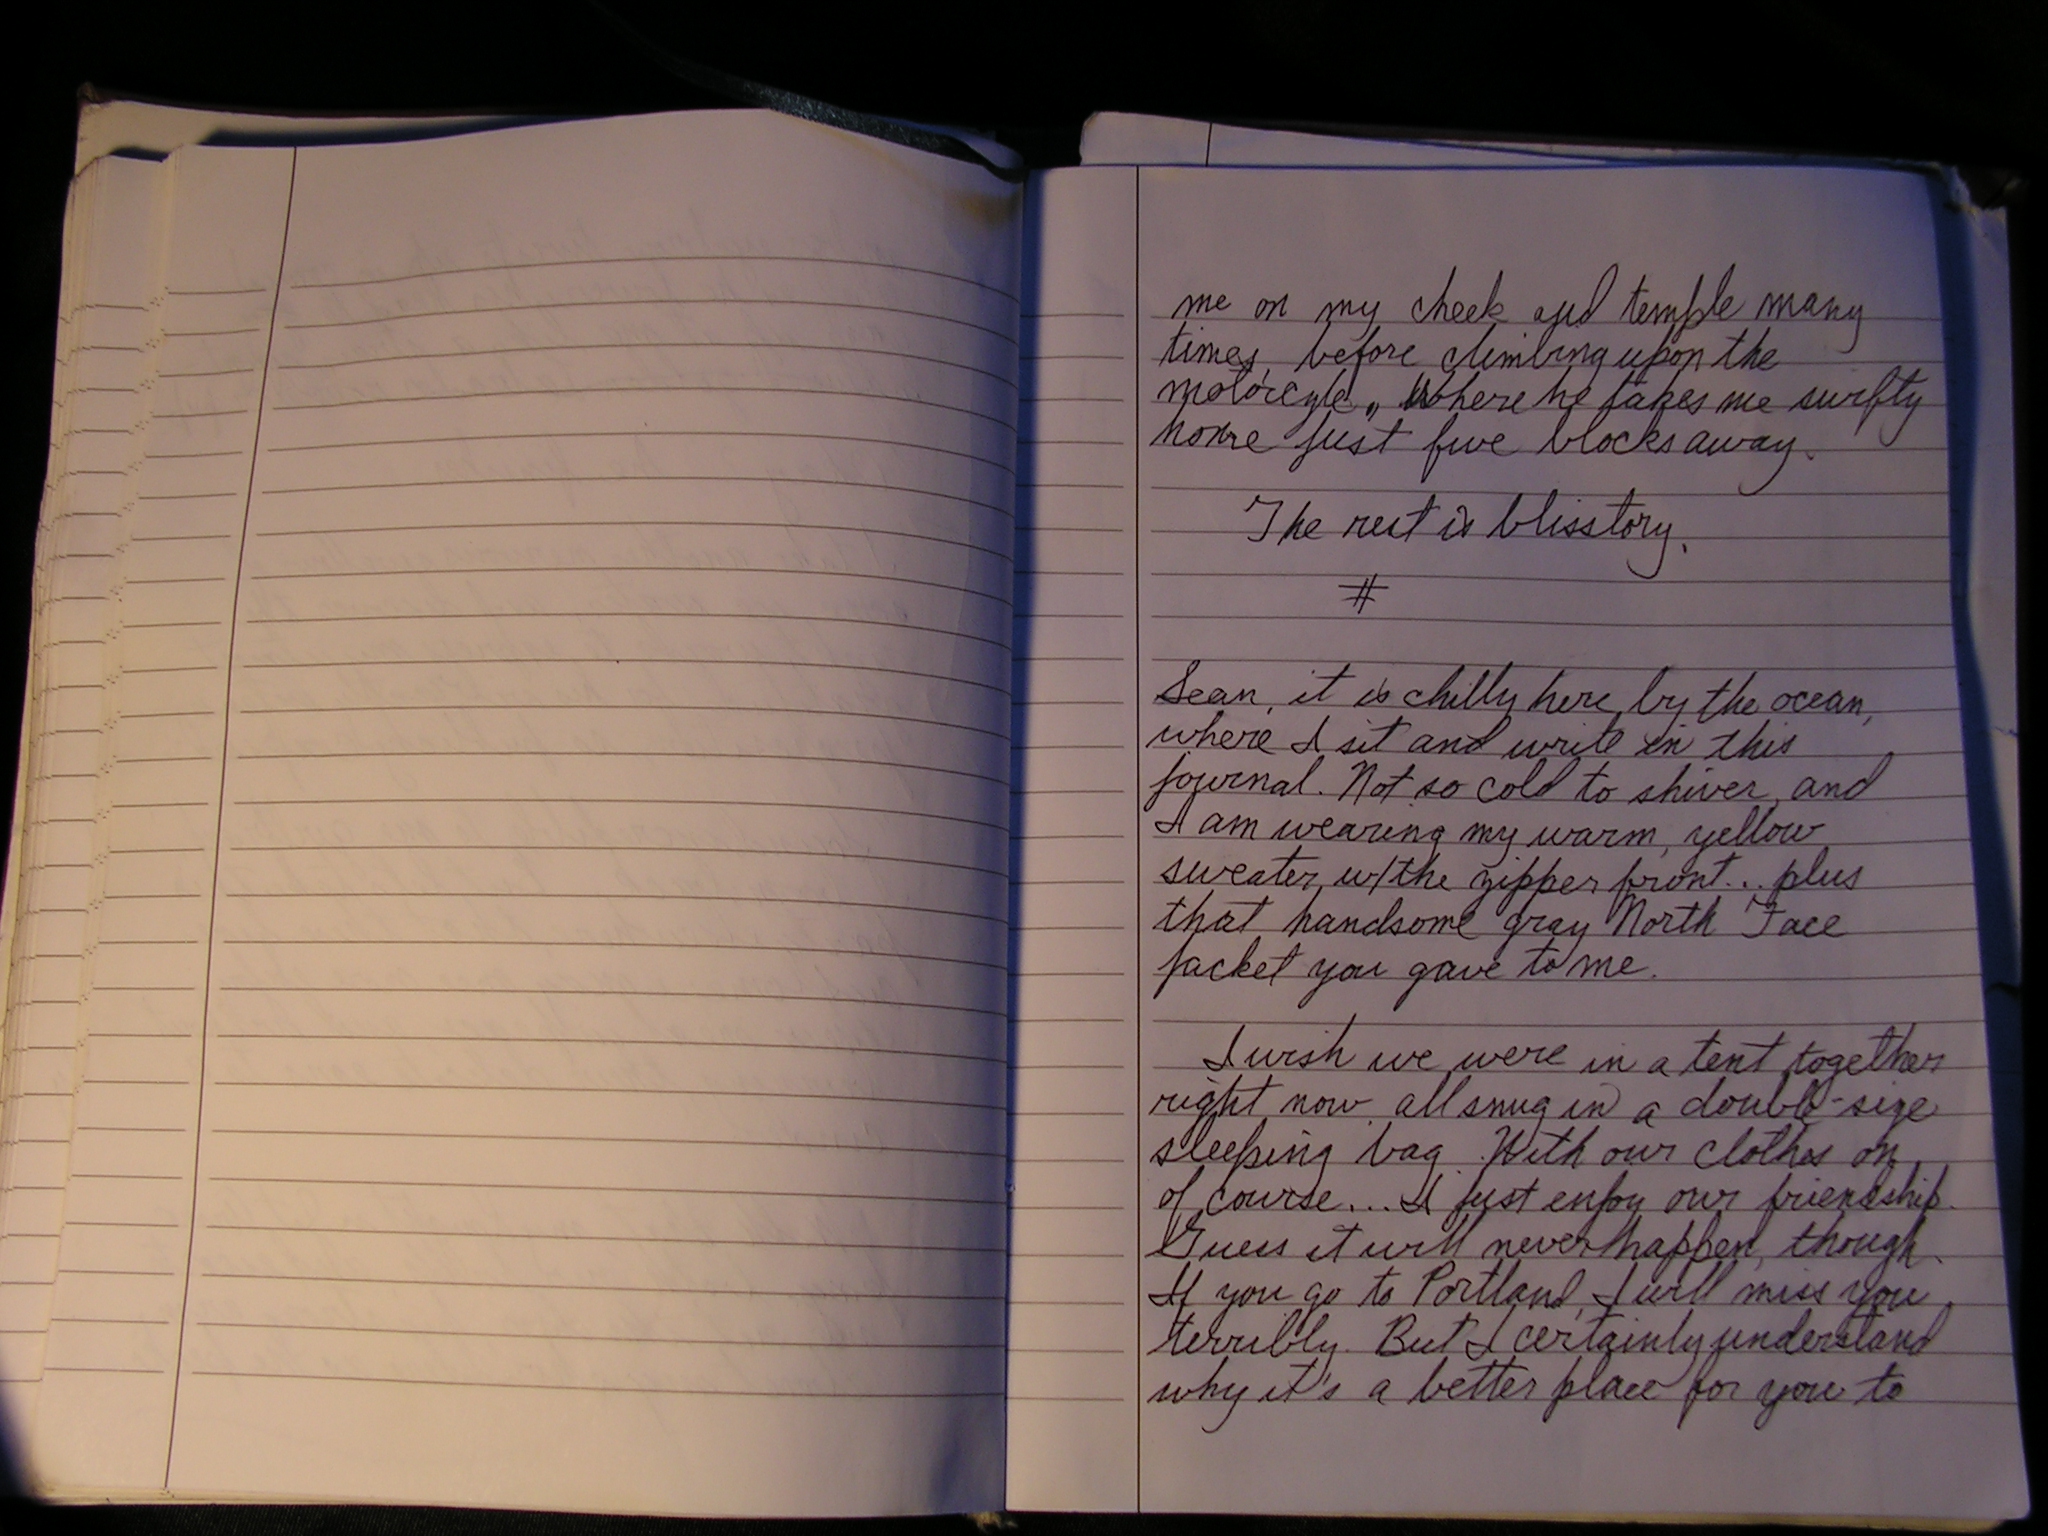 me on my cheek and temple many
times, before climbing upon the
motorcyle, where he takes me swiftly
home just five blocks away.
The rest is blisstory.
#
Sean, it is chilly here by the ocean,
where I sit and write in this
journal. Not so cold to shiver, and
I am wearing my warm, yellow
sweater w/the zipper front... plus
that handsome gray North Face
jacket you gave to me.
I wish we were in a tent together
right now, all snug in a double-size
sleeping bag. With our clothes on
of course... I just enjoy our friendship.
Guess it will never happen, though.
If you go to Portland, I will miss you
terribly. But I certainly understand
why it's a better place for you to